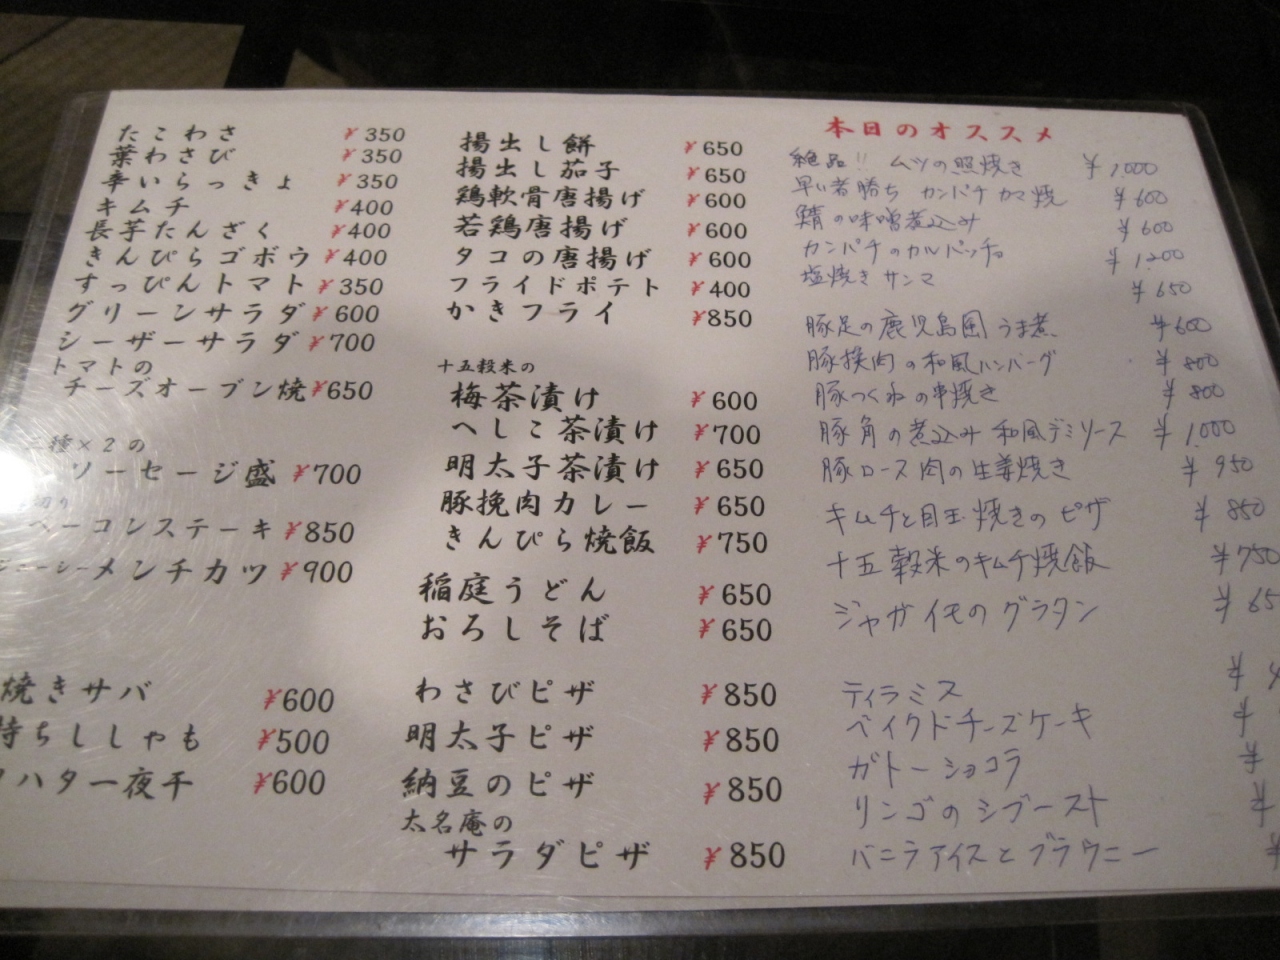 たこわさ ¥350
葉わさび ¥350
辛いらっきょ ¥350
キムチ ¥400
長芋たんざく ¥400
きんぴらゴボウ ¥400
すっぴんトマト ¥350
グリーンサラダ ¥600
シーザーサラダ ¥700
トマトの
チーズオーブン焼 ¥650
種×2の
ソーセージ盛 ¥700
切り
ベーコンステーキ ¥850
メンチカツ ¥900
焼きサバ ¥600
持ちししゃも ¥500
ハター夜干 ¥600
揚出し餅 ¥650
揚出し茄子 ¥650
鶏軟骨唐揚げ ¥600
若鶏唐揚げ ¥600
タコの唐揚げ ¥600
フライドポテト ¥400
かきフライ ¥850
十五穀米の
梅茶漬け ¥600
へしこ茶漬け ¥700
明太子茶漬け ¥650
豚挽肉カレー ¥650
きんぴら焼飯 ¥750
稲庭うどん ¥650
おろしそば ¥650
わさびピザ ¥850
明太子ピザ ¥850
納豆のピザ ¥850
太名庵の
サラダピザ ¥850
本日のオススメ
絶品!! ムツの照焼き ¥1000
早い者勝ち カンパチカマ焼 ¥600
鯖の味噌煮込み ¥600
カンパチのカルパッチョ ¥1,200
塩焼きサンマ ¥650
豚足の鹿児島風うま煮 ¥600
豚挽肉の和風ハンバーグ ¥800
豚つくねの串焼き ¥800
豚角の煮込み 和風デミソース ¥1,000
豚ロース肉の生姜焼き ¥950
キムチと目玉焼きのピザ ¥850
十五穀米のキムチ焼飯 ¥750
ジャガイモのグラタン ¥65
ティラミス ¥4
ベイクドチーズケーキ ¥
ガトーショコラ ¥
リンゴのシブースト ¥
バニラアイスとブラウニー ¥